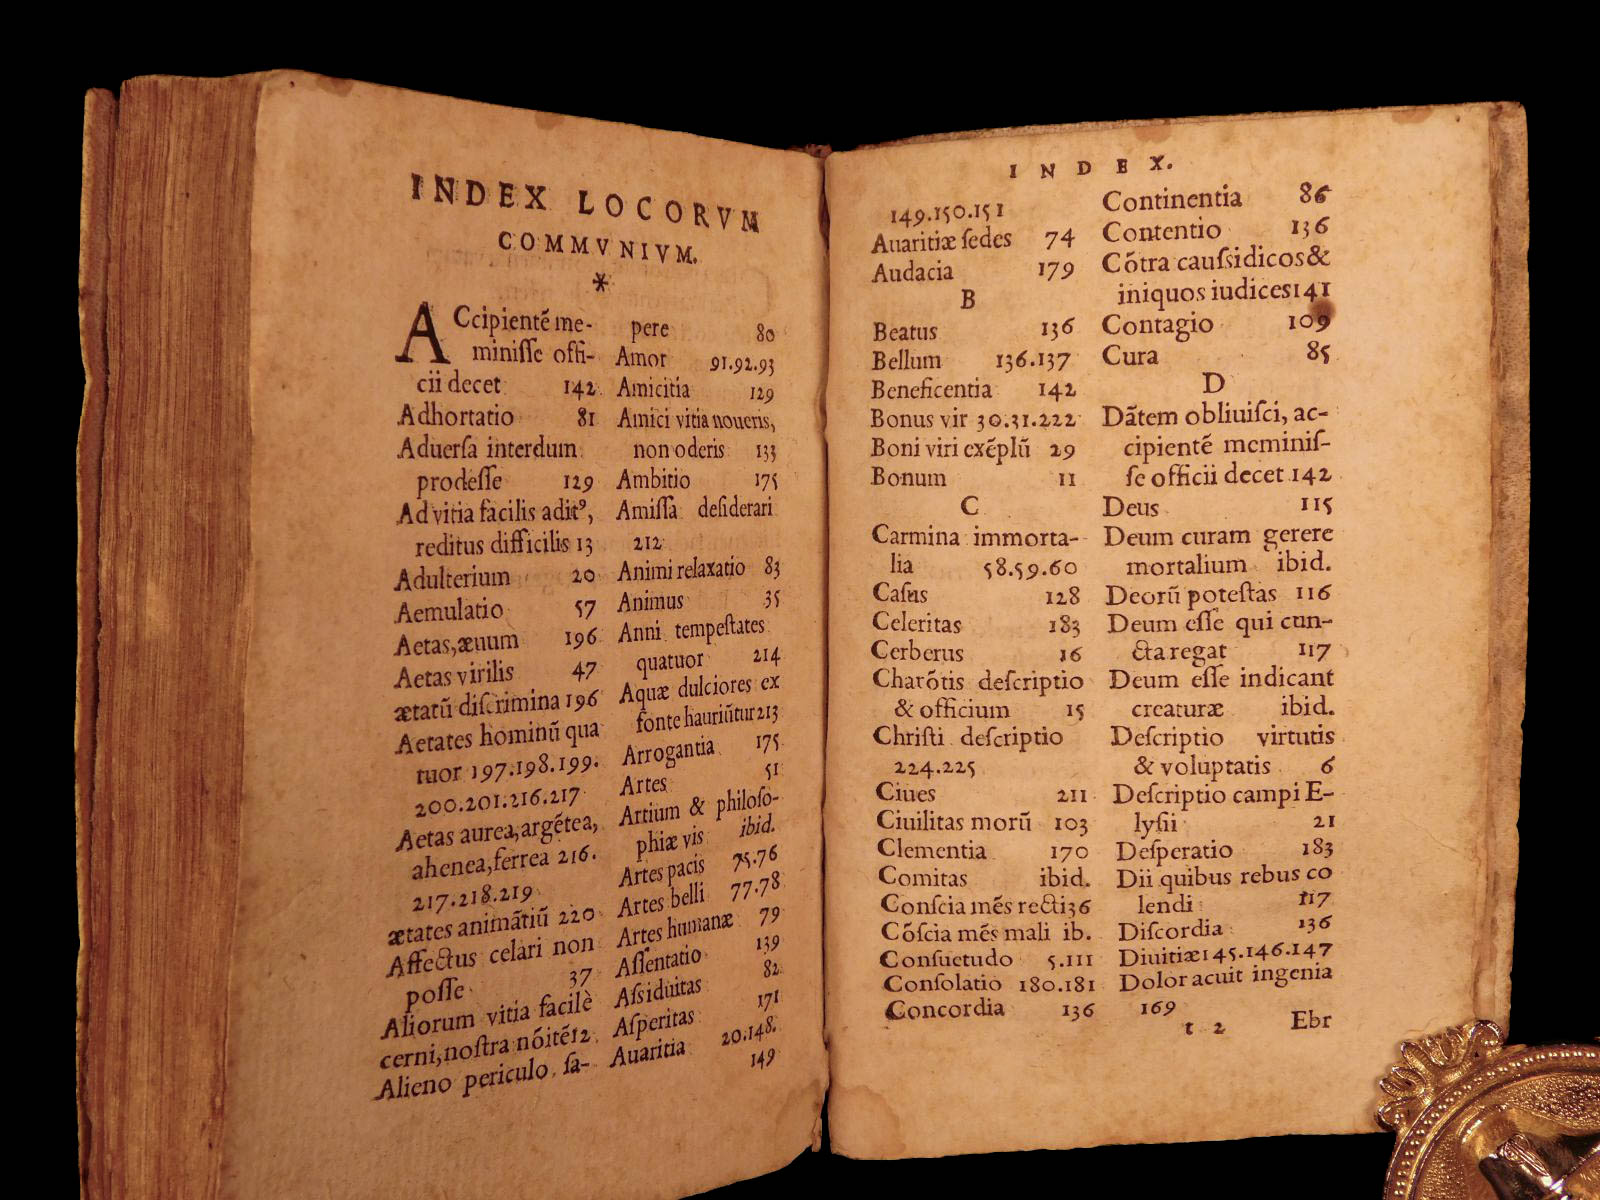 INDEX LOCORVM
COMMVNIVM.
*
ACcipientē me-
miniſſe offi-
cii decet 142
Adhortatio 81
Aduerſa interdum
prodeſſe 129
Ad vitia facilis aditꝰ,
reditus difficilis 13
Adulterium 20
Aemulatio 57
Aetas, æuum 196
Aetas virilis 47
ætatū diſcrimina 196
Aetates hominū qua
tuor 197.198.199.
200.201.216.217
Aetas aurea, argētea,
ahenea, ferrea 216.
217.218.219
ætates animātiū 220
Affectus celari non
poſſe 37
Aliorum vitia facilè
cerni, noſtra nō itē 12
Alieno periculo ſa-
pere 80
Amor 91.92.93
Amicitia 129
Amici vitia noueris,
non oderis 133
Ambitio 175
Amiſſa deſiderari
212
Animi relaxatio 83
Animus 35
Anni tempeſtates
quatuor 214
Aquæ dulciores ex
fonte hauriūtur 213
Arrogantia 175
Artes 51
Artium & philoſo-
phiæ vis ibid.
Artes pacis 75.76
Artes belli 77.78
Artes humanæ 79
Aſſentatio 139
Aſsiduitas 82
Aſperitas 171
Auaritia 20.148.
149
INDEX.
149.150.151
Auaritiæ ſedes 74
Audacia 179
B
Beatus 136
Bellum 136.137
Beneficentia 142
Bonus vir 30.31.222
Boni viri exēplū 29
Bonum 11
C
Carmina immorta-
lia 58.59.60
Caſus 128
Celeritas 183
Cerberus 16
Charōtis deſcriptio
& officium 15
Chriſti deſcriptio
224.225
Ciues 211
Ciuilitas morū 103
Clementia 170
Comitas ibid.
Conſcia mēs recti 36
Cōſcia mēs mali ib.
Conſuetudo 5.111
Conſolatio 180.181
Concordia 136
Continentia 86
Contentio 136
Cōtra cauſsidicos &
iniquos iudices 141
Contagio 109
Cura 85
D
Dātem obliuiſci, ac-
cipientē meminiſ-
ſe officii decet 142
Deus 115
Deum curam gerere
mortalium ibid.
Deorū poteſtas 116
Deum eſſe qui cun-
cta regat 117
Deum eſſe indicant
creaturæ ibid.
Deſcriptio virtutis
& voluptatis 6
Deſcriptio campi E-
lyſii 21
Deſperatio 183
Dii quibus rebus co
lendi 117
Diſcordia 136
Diuitiæ 145.146.147
Dolor acuit ingenia
169
t 2 Ebr